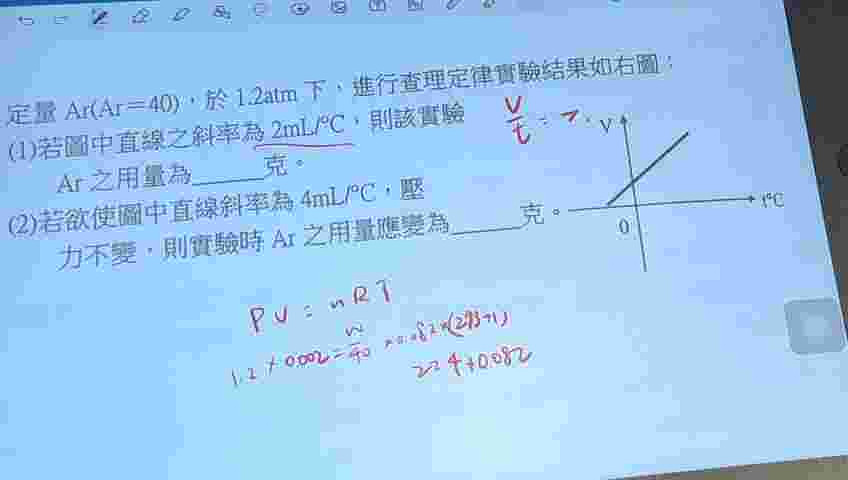 定量 Ar(Ar=40),於 1.2atm 下,進行查理定律實驗結果如右圖:
(1)若圖中直線之斜率為 2mL/℃,則該實驗
Ar 之用量為_____克。
(2)若欲使圖中直線斜率為 4mL/℃,壓
力不變,則實驗時 Ar 之用量應變為_____克。
V/t =
V
t℃
0
PV = nRT
1.2 × 0.002 = w/40 × 0.082 × (273+1)
22.4+0.082